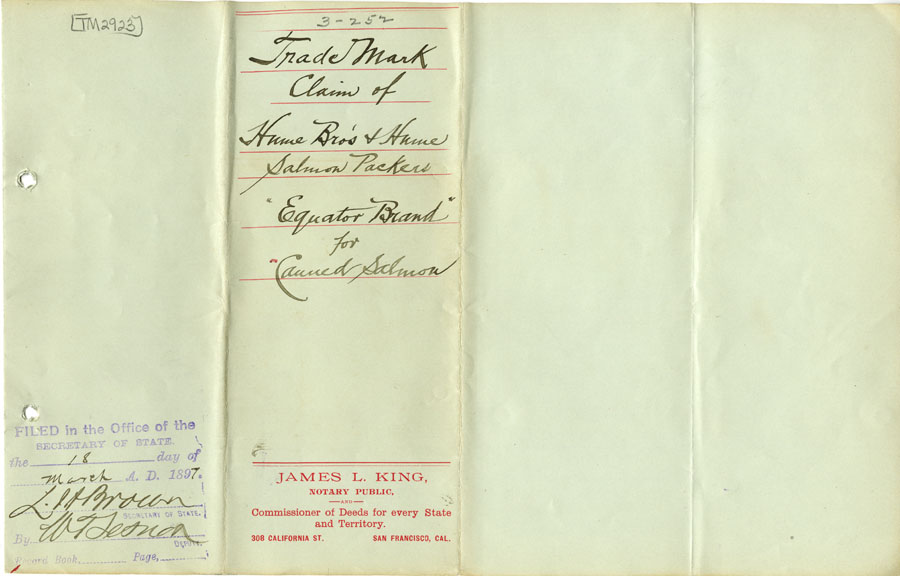 TM2923
3-252
Trade Mark
Claim of
Hume Bro's & Hume
Salmon Packers
"Equator Brand"
for
"Canned Salmon
FILED in the Office of the
SECRETARY OF STATE.
the 18 day of
March A. D. 1897.
L. H. Brown
SECRETARY OF STATE.
By
DEPUTY.
Record Book, Page,
JAMES L. KING,
NOTARY PUBLIC,
AND
Commissioner of Deeds for every State
and Territory.
308 CALIFORNIA ST. SAN FRANCISCO, CAL.